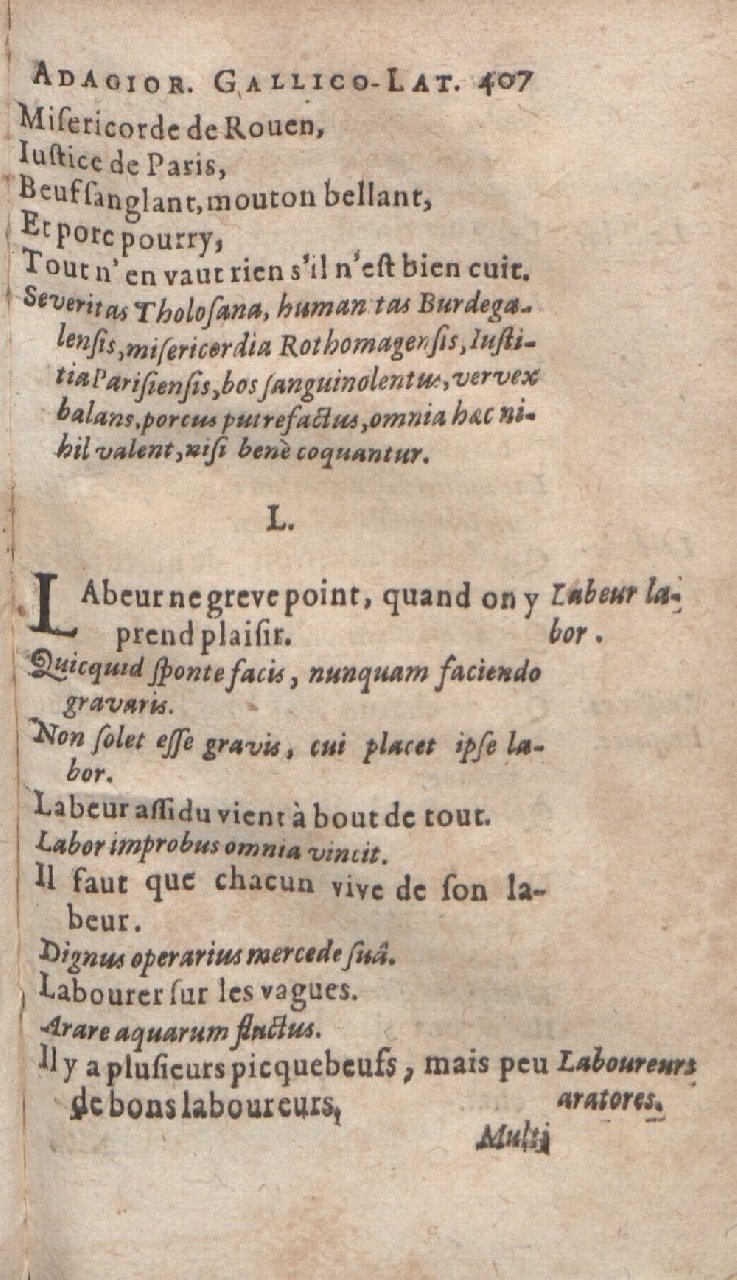 ADAGIOR. GALLICO-LAT. 407
Misericorde de Rouen,
Iustice de Paris,
Beuf sanglant, mouton bellant,
Et porc pourry,
Tout n'en vaut rien s'il n'est bien cuit.
Severitas Tholosana, human tas Burdega-
lensis, misericordia Rothomagensis, Iusti-
tia Parisiensis, bos sanguinolentus, vervex
balans, porcus putrefactus, omnia hæc ni-
hil valent, nisi benè coquantur.
L.
LAbeur ne greve point, quand on y
prend plaisir.
Labeur la-
bor.
Quicquid sponte facis, nunquam faciendo
gravaris.
Non solet esse gravis, cui placet ipse la-
bor.
Labeur assidu vient à bout de tout.
Labor improbus omnia vincit.
Il faut que chacun vive de son la-
beur.
Dignus operarius mercede suâ.
Labourer sur les vagues.
Arare aquarum fluctus.
Il y a plusieurs picquebeufs, mais peu
de bons laboureurs,
Laboureurs
aratores.
Multi